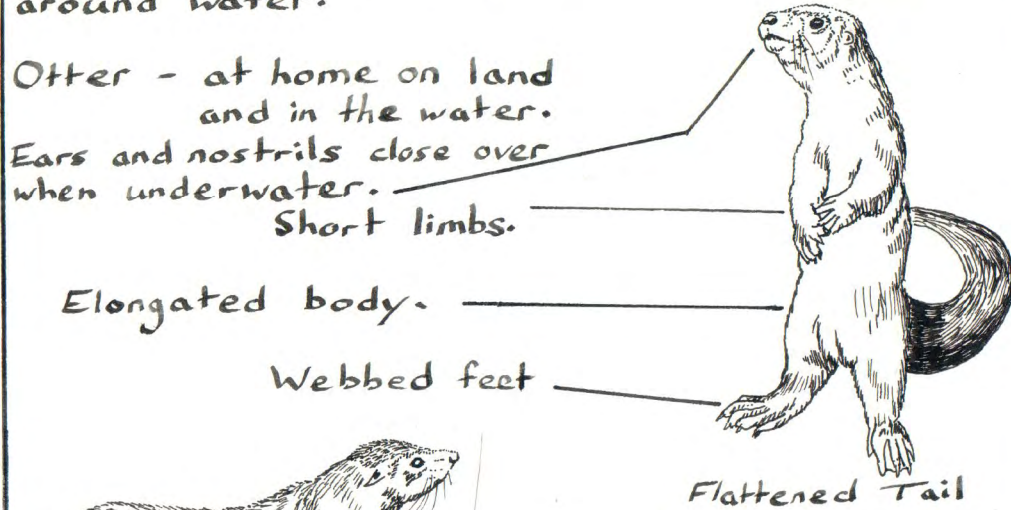 around water.
Otter - at home on land
and in the water.
Ears and nostrils close over
when underwater.
Short limbs.
Elongated body.
Webbed feet
Flattened Tail